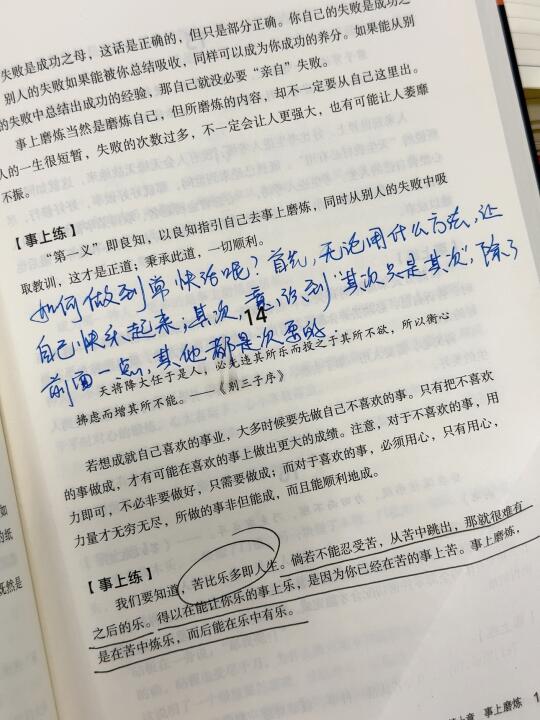 失败是成功之母，这话是正确的，但只是部分正确。你自己的失败是成功之
别人的失败如果能被你总结吸收，同样可以成为你成功的养分。如果能从别
的失败中总结出成功的经验，那自己就没必要“亲自”失败。
事上磨炼当然是磨炼自己，但所磨炼的内容，却不一定要从自己这里出。
人的一生很短暂，失败的次数过多，不一定会让人更强大，也有可能让人萎靡
不振。
【事上练】
“第一义”即良知，以良知指引自己去事上磨炼，同时从别人的失败中吸
取教训，这才是正道；秉承此道，一切顺利。
如何做到常快活呢？首先，无论用什么方法，让
自己快乐起来；其次，意识到“其次只是其次”，除了
前面一点，其他都是次要的.
14
天将降大任于是人，必先违其所乐而投之于其所不欲，所以衡心
拂虑而增其所不能。——《别三子序》
若想成就自己喜欢的事业，大多时候要先做自己不喜欢的事。只有把不喜欢
的事做成，才有可能在喜欢的事上做出更大的成绩。注意，对于不喜欢的事，用
力即可，不必非要做好，只需要做成；而对于喜欢的事，必须用心，只有用心，
力量才无穷无尽，所做的事非但能成，而且能顺利地成。
【事上练】
我们要知道，苦比乐多即人生。倘若不能忍受苦，从苦中跳出，那就很难有
之后的乐。得以在能让你乐的事上乐，是因为你已经在苦的事上苦。事上磨炼，
是在苦中炼乐，而后能在乐中有乐。
事上磨炼